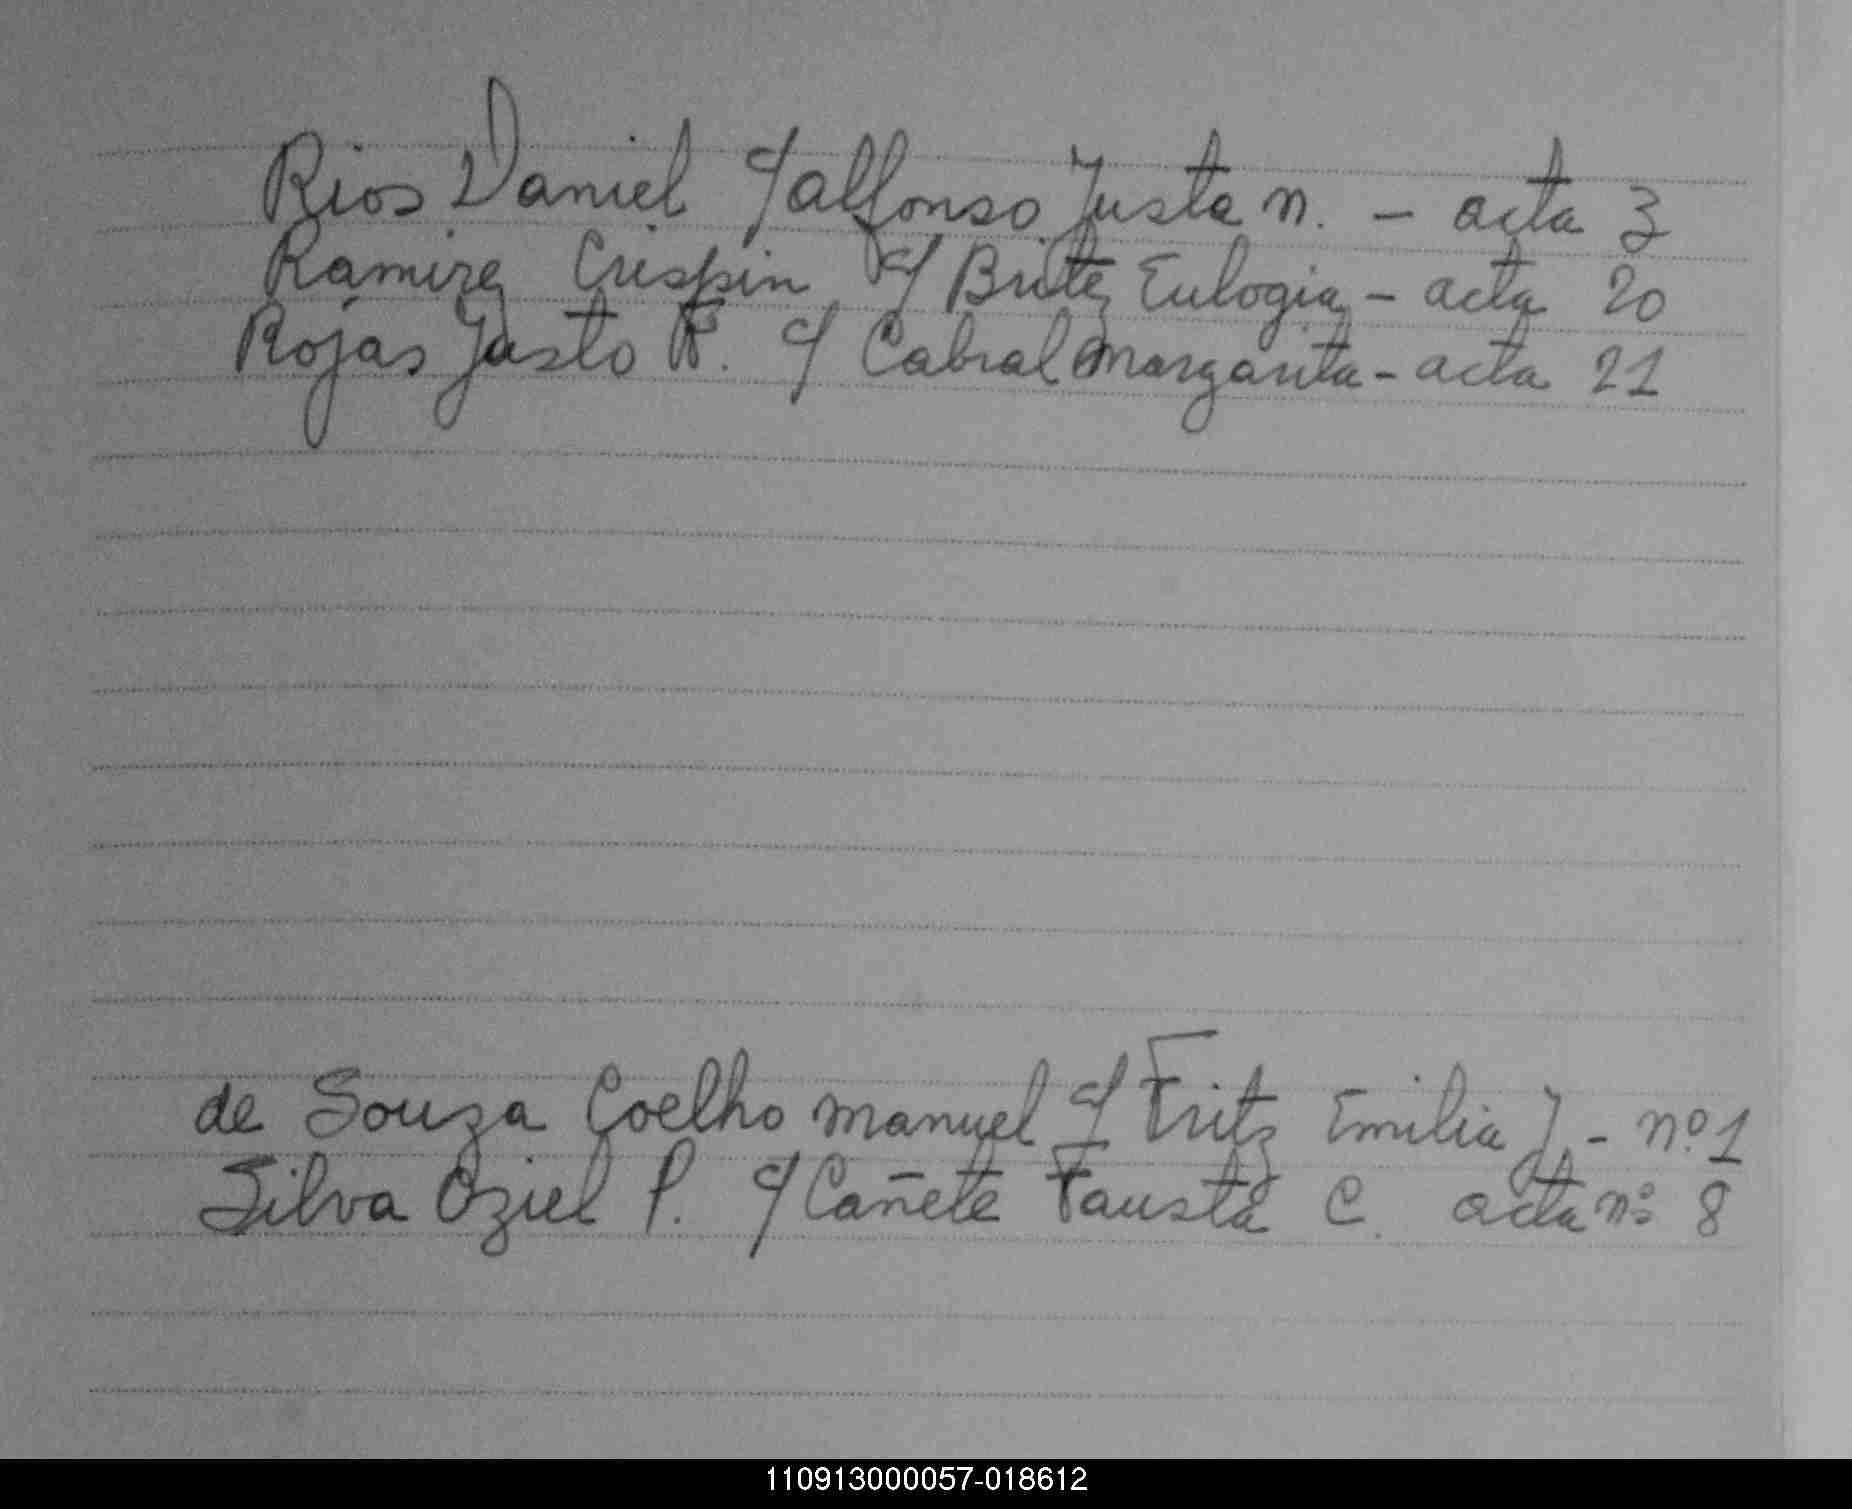 Rios Daniel c/ Alfonso Justa n. - acta 3
Ramirez Crispin c/ Britez Eulogia - acta 20
Rojas Justo F. c/ Cabral Margarita - acta 21
de Souza Coelho Manuel c/ Fritz Emilia J - nº 1
Silva Oziel P. c/ Cañete Fausta C. acta nº 8
110913000057-018612